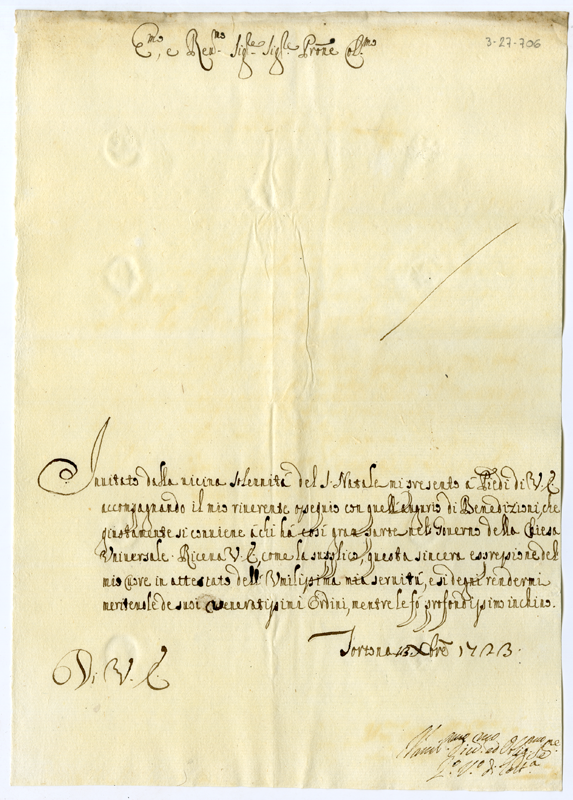 E.mo, e Ren.mo Sig.re Sig.re Pron͠e Col.mo
3-27-706
Inuitato dalla uicina Solennità del S. Natale mi presento a' Piedi di V. E.
accompagnando il mio riuerente ossequio con quell'augurio di Benedizioni, che
giustamente si conuiene à chi ha così gran parte nel Gouerno della Chiesa
Vniuersale. Riceua V. E., come la supplico, questa sincera espressione del
mio Cuore in attestato dell'Vmilissima mia seruitù, e si degni rendermi
meriteuole de suoi ueneratissimi Ordini, mentre le fò profondissimo inchino.
Tortona 13 Xbre 1723.
Di V. E.